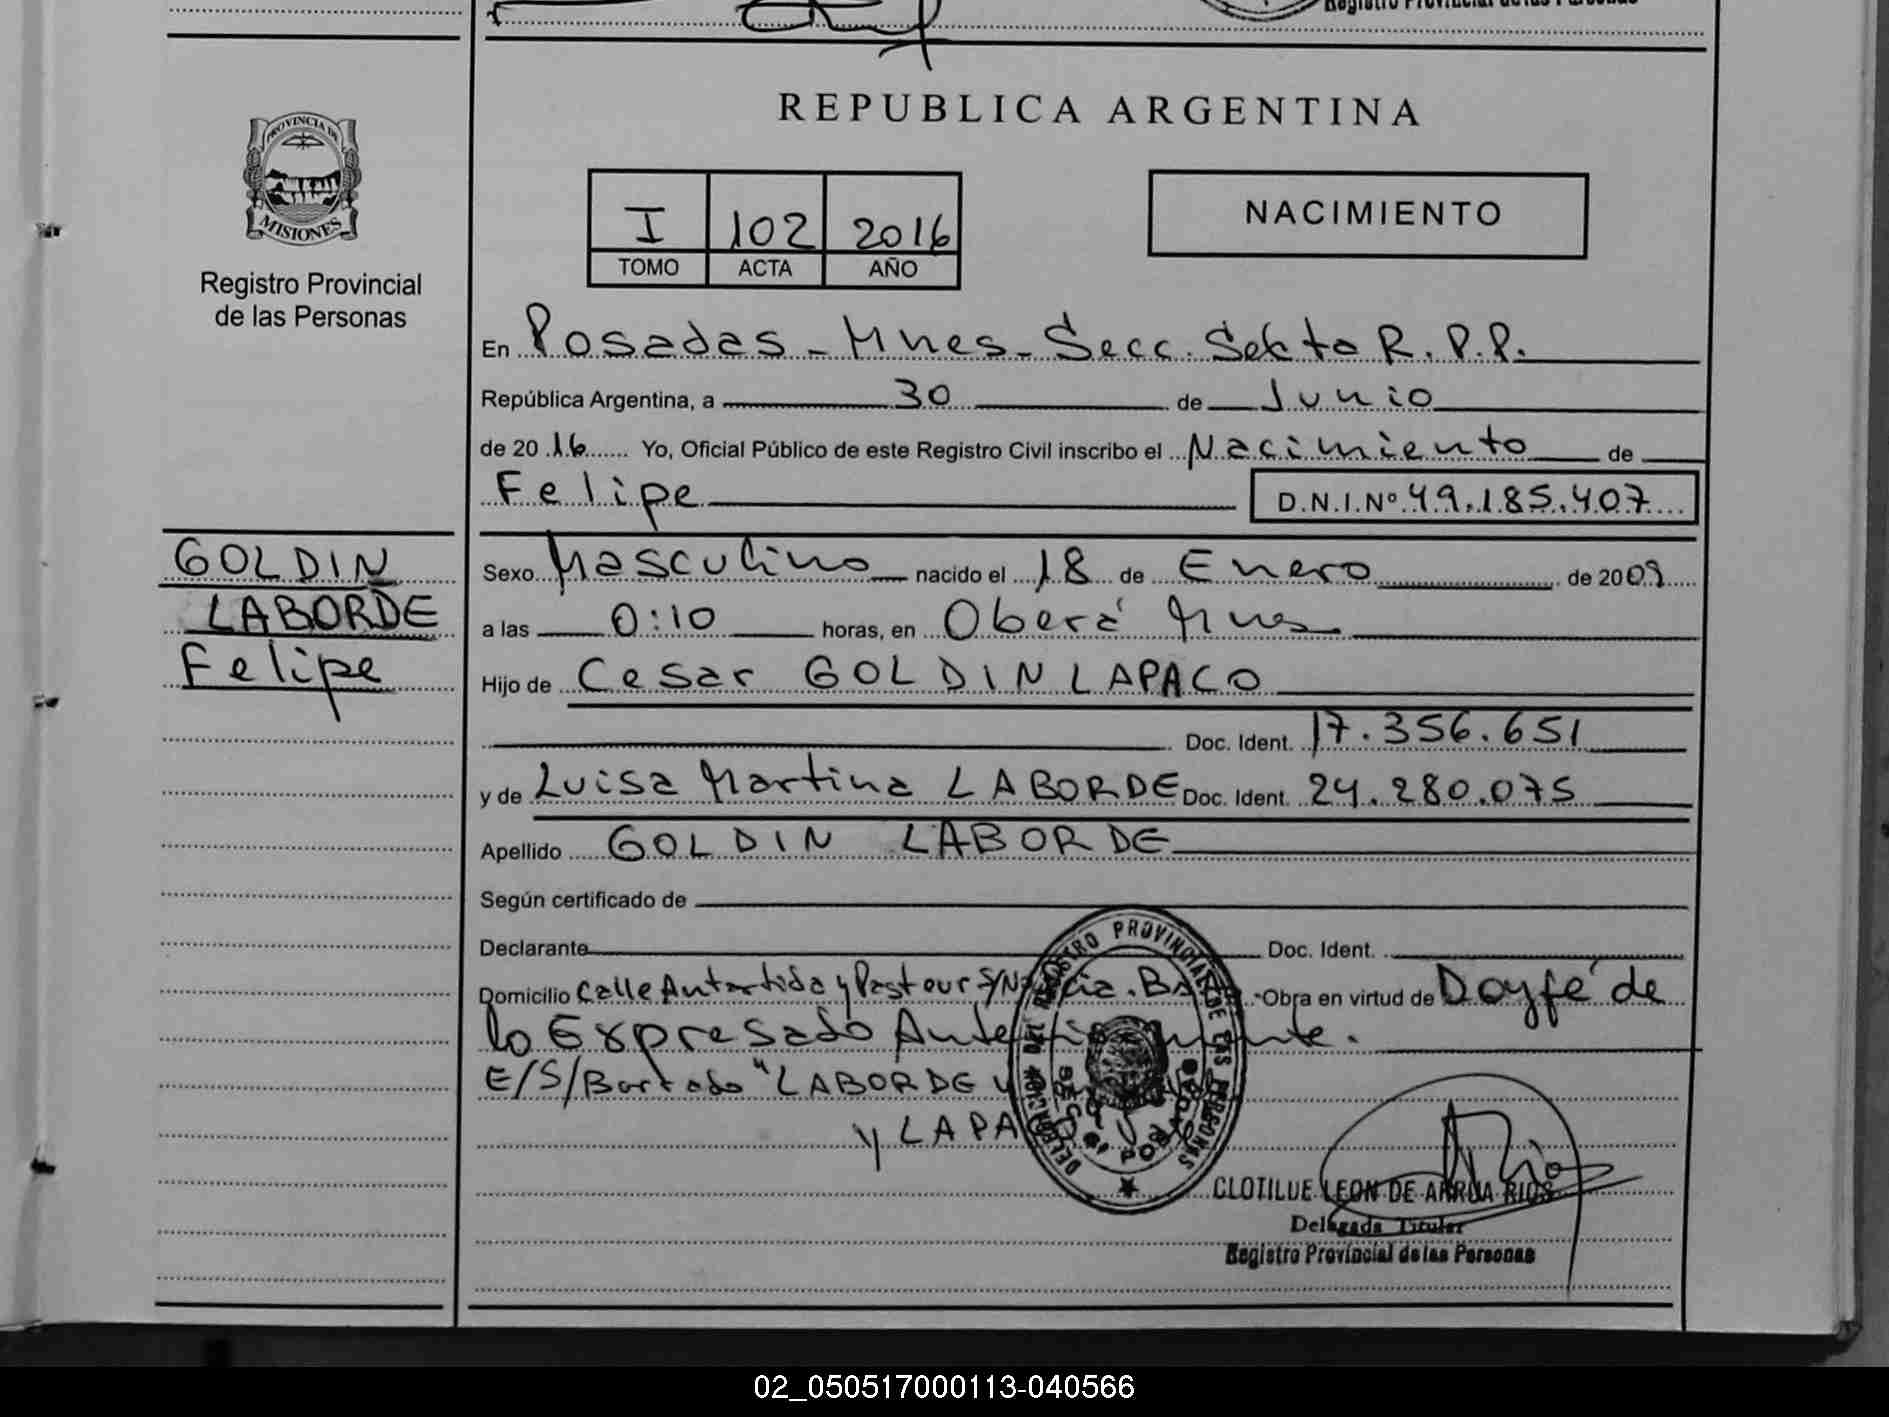 Registro Provincial de las Personas
REPUBLICA ARGENTINA
PROVINCIA DE
MISIONES
Registro Provincial
de las Personas
I 102 2016
TOMO ACTA AÑO
NACIMIENTO
En Posadas - Mnes - Secc. Sexta R.P.P.
República Argentina, a 30 de Junio
de 2016 Yo, Oficial Público de este Registro Civil inscribo el Nacimiento de
Felipe D.N.I.Nº 49.185.407
GOLDIN
LABORDE
Felipe
Sexo Masculino nacido el 18 de Enero de 2009
a las 0:10 horas, en Oberá Mnes
Hijo de Cesar GOLDIN LAPACO
Doc. Ident. 17.356.651
y de Luisa Martina LABORDE Doc. Ident. 24.280.075
Apellido GOLDIN LABORDE
Según certificado de
Declarante Doc. Ident.
Domicilio Calle Antartida y Pasteur S/Nº Obra en virtud de Doy fé de
lo Expresado
E/S/Borrado "LABORDE
y
REGISTRO PROVINCIAL DE LAS PERSONAS
POSADAS
CLOTILDE LEON DE ARRUA RIOS
Delegada Titular
Registro Provincial de las Personas
02_050517000113-040566